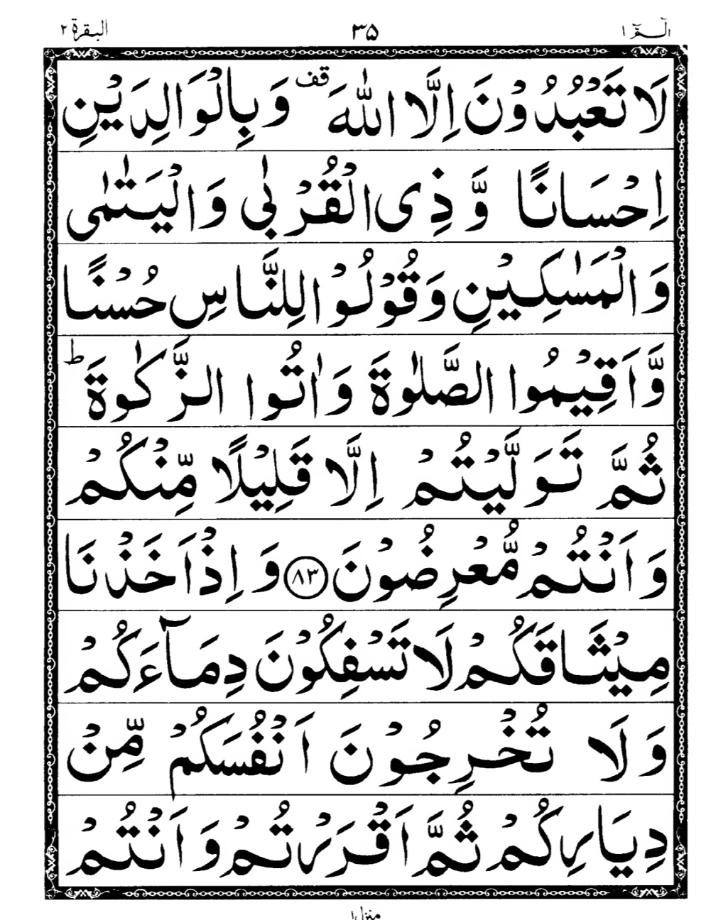 الٓـمّٓ ١ ٣٥ البقرة ٢
لَا تَعۡبُدُوۡنَ اِلَّا اللّٰهَ ࣞقف وَبِالۡوَالِدَيۡنِ
اِحۡسَانًا وَّذِى الۡقُرۡبٰى وَالۡيَتٰمٰى
وَالۡمَسٰكِيۡنِ وَقُوۡلُوۡا لِلنَّاسِ حُسۡنًا
وَّاَقِيۡمُوا الصَّلٰوةَ وَاٰتُوا الزَّكٰوةَ ؕ
ثُمَّ تَوَلَّيۡتُمۡ اِلَّا قَلِيۡلًا مِّنۡكُمۡ
وَاَنۡتُمۡ مُّعۡرِضُوۡنَ ﴿٨٣﴾ وَاِذۡ اَخَذۡنَا
مِيۡثَاقَكُمۡ لَا تَسۡفِكُوۡنَ دِمَآءَكُمۡ
وَلَا تُخۡرِجُوۡنَ اَنۡفُسَكُمۡ مِّنۡ
دِيَارِكُمۡ ثُمَّ اَقۡرَرۡتُمۡ وَاَنۡتُمۡ
منزل ١